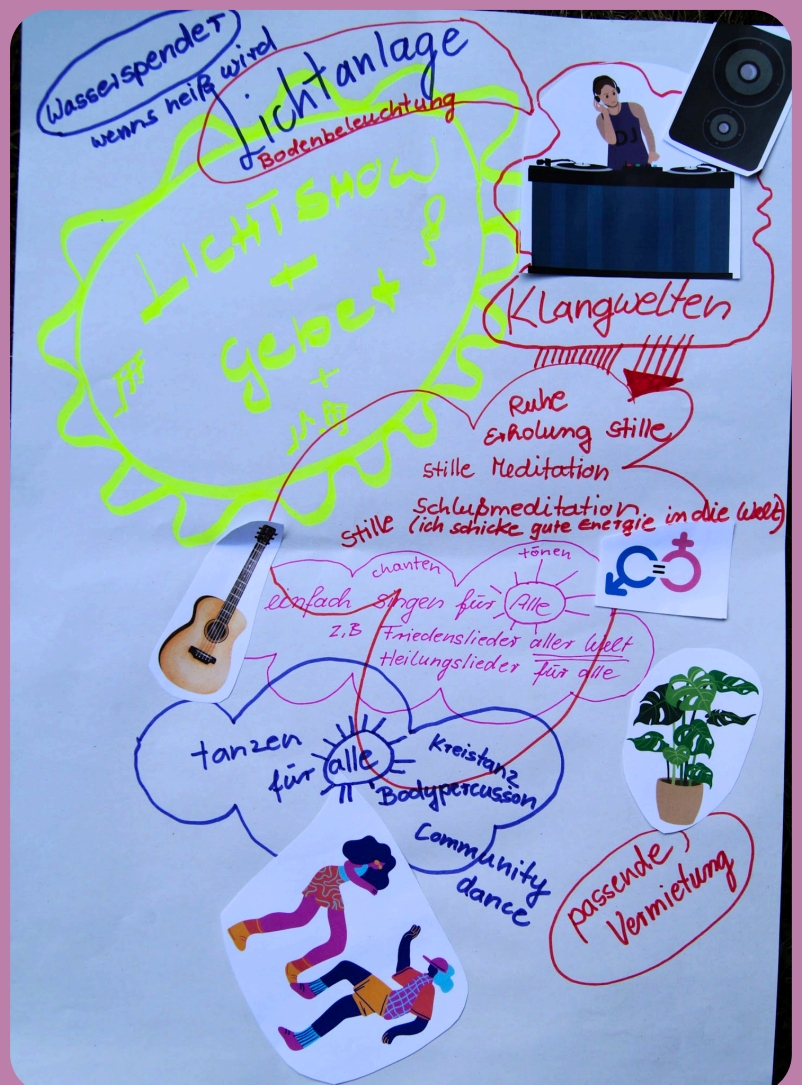 Wasserspender
wenns heiß wird
Lichtanlage
Bodenbeleuchtung
DJ
LICHTSHOW
+
Gebet
+
Klangwelten
Ruhe
Erholung Stille
Stille Meditation
Schlußmeditation
Stille (ich schicke gute Energie in die Welt)
chanten
tönen
einfach singen für Alle
z.B Friedenslieder aller Welt
Heilungslieder für alle
=
tanzen
für alle
Kreistanz
Bodypercussion
Community
dance
passende
Vermietung